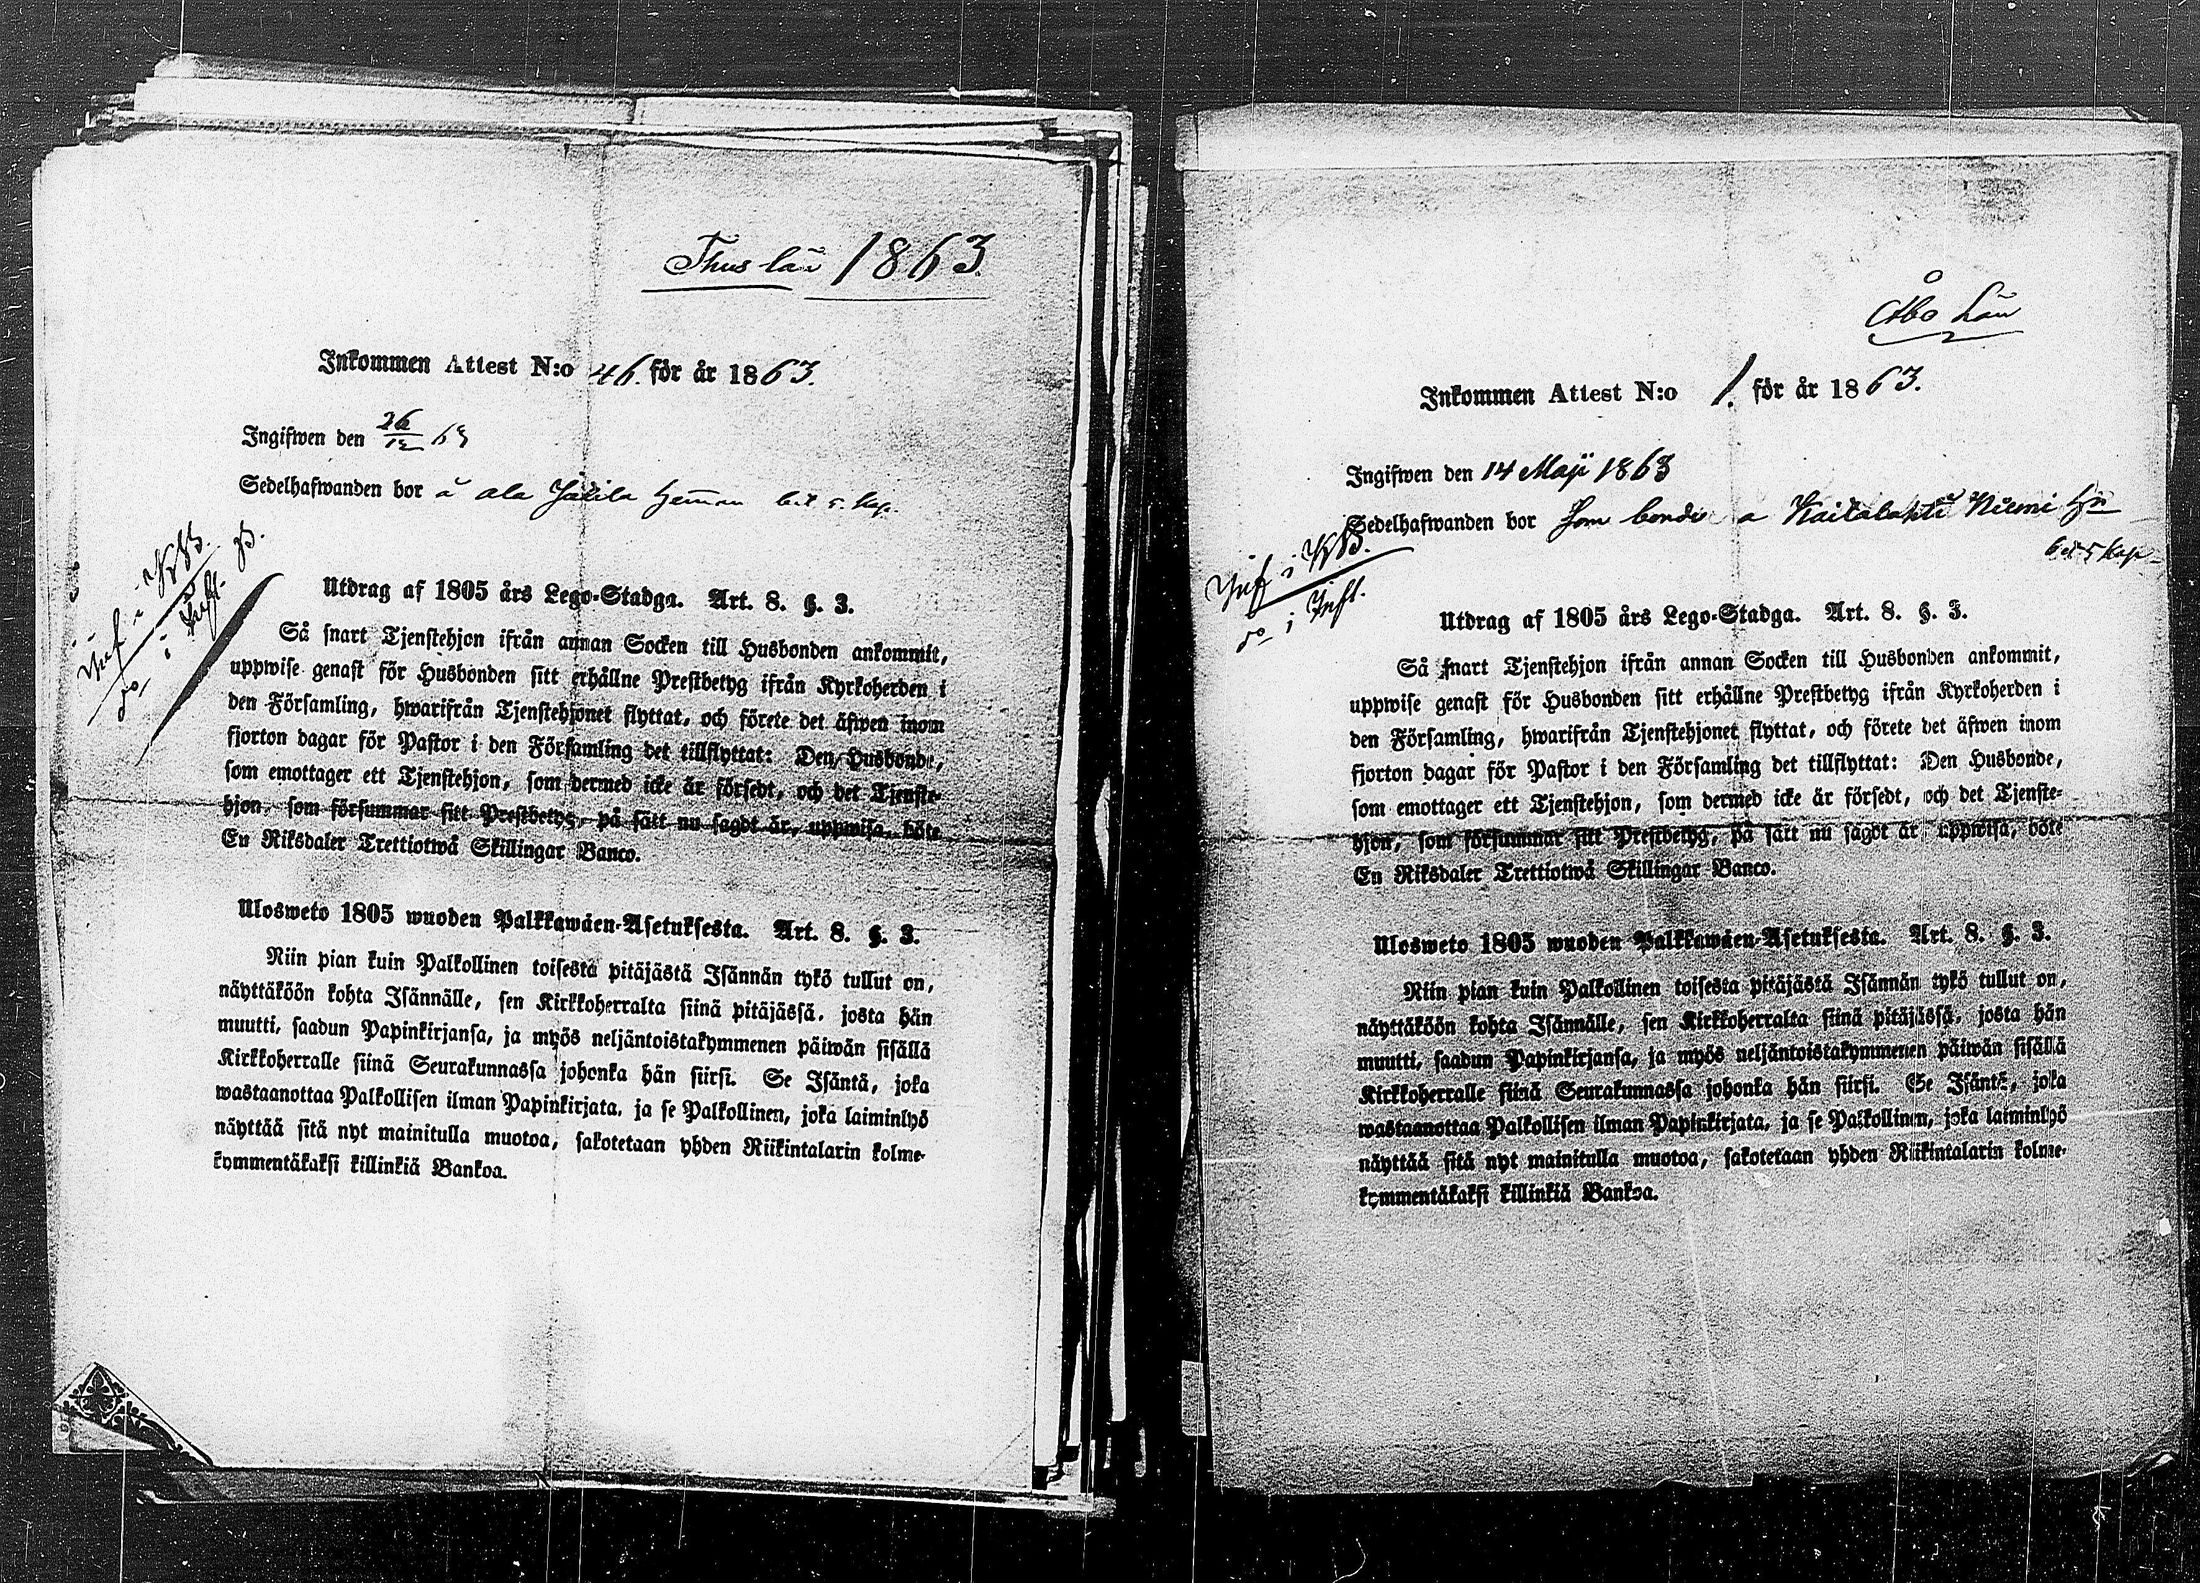 Thus län 1863.
Inkommen Attest N:o 46. för år 1863.
Ingifwen den 26/12 63
Sedelhafwanden bor å ala Jäkilä hemman bet 5. kop.
Inf i KB.
do i Infl.
Utdrag af 1805 års Lego-Stadga. Art. 8. §. 3.
Så snart Tjenstehjon ifrån annan Socken till Husbonden ankommit,
uppwise genast för Husbonden sitt erhållne Prestbetyg ifrån Kyrkoherden i
den Församling, hwarifrån Tjenstehjonet flyttat, och förete det äfwen inom
fjorton dagar för Pastor i den Församling det tillflyttat: Den Husbonde,
som emottager ett Tjenstehjon, som dermed icke är försedt, och det Tjenste-
hjon, som försummar sitt Prestbetyg, på sätt nu sagdt är, uppwisa, böte
En Riksdaler Trettiotwå Skillingar Banco.
Ulosweto 1805 wuoden Palkkawäen-Asetuksesta. Art. 8. §. 3.
Niin pian kuin Palkollinen toisesta pitäjästä Isännän tykö tullut on,
näyttäköön kohta Isännälle, sen Kirkkoherralta siinä pitäjässä, josta hän
muutti, saadun Papinkirjansa, ja myös neljäntoistakymmenen päiwän sisällä
Kirkkoherralle siinä Seurakunnassa johonka hän siirsi. Se Isäntä, joka
wastaanottaa Palkollisen ilman Papinkirjata, ja se Palkollinen, joka laiminlyö
näyttää sitä nyt mainitulla muotoa, sakotetaan yhden Riikintalarin kolme-
kymmentäkaksi killinkiä Bankoa.
Åbo Län
Inkommen Attest N:o 1. för år 1863.
Ingifwen den 14 Maji 1863
Sedelhafwanden bor som bonde a Kaitalahti Niemi Hn
bet 5 kop
Inf i KB.
do i Infl.
Utdrag af 1805 års Lego-Stadga. Art. 8. §. 3.
Så snart Tjenstehjon ifrån annan Socken till Husbonden ankommit,
uppwise genast för Husbonden sitt erhållne Prestbetyg ifrån Kyrkoherden i
den Församling, hwarifrån Tjenstehjonet flyttat, och förete det äfwen inom
fjorton dagar för Pastor i den Församling det tillflyttat: Den Husbonde,
som emottager ett Tjenstehjon, som dermed icke är försedt, och det Tjenste-
hjon, som försummar sitt Prestbetyg, på sätt nu sagdt är, uppwisa, böte
En Riksdaler Trettiotwå Skillingar Banco.
Ulosweto 1805 wuoden Palkkawäen-Asetuksesta. Art. 8. §. 3.
Niin pian kuin Palkollinen toisesta pitäjästä Isännän tykö tullut on,
näyttäköön kohta Isännälle, sen Kirkkoherralta siinä pitäjässä, josta hän
muutti, saadun Papinkirjansa, ja myös neljäntoistakymmenen päiwän sisällä
Kirkkoherralle siinä Seurakunnassa johonka hän siirsi. Se Isäntä, joka
wastaanottaa Palkollisen ilman Papinkirjata, ja se Palkollinen, joka laiminlyö
näyttää sitä nyt mainitulla muotoa, sakotetaan yhden Riikintalarin kolme-
kymmentäkaksi killinkiä Bankoa.